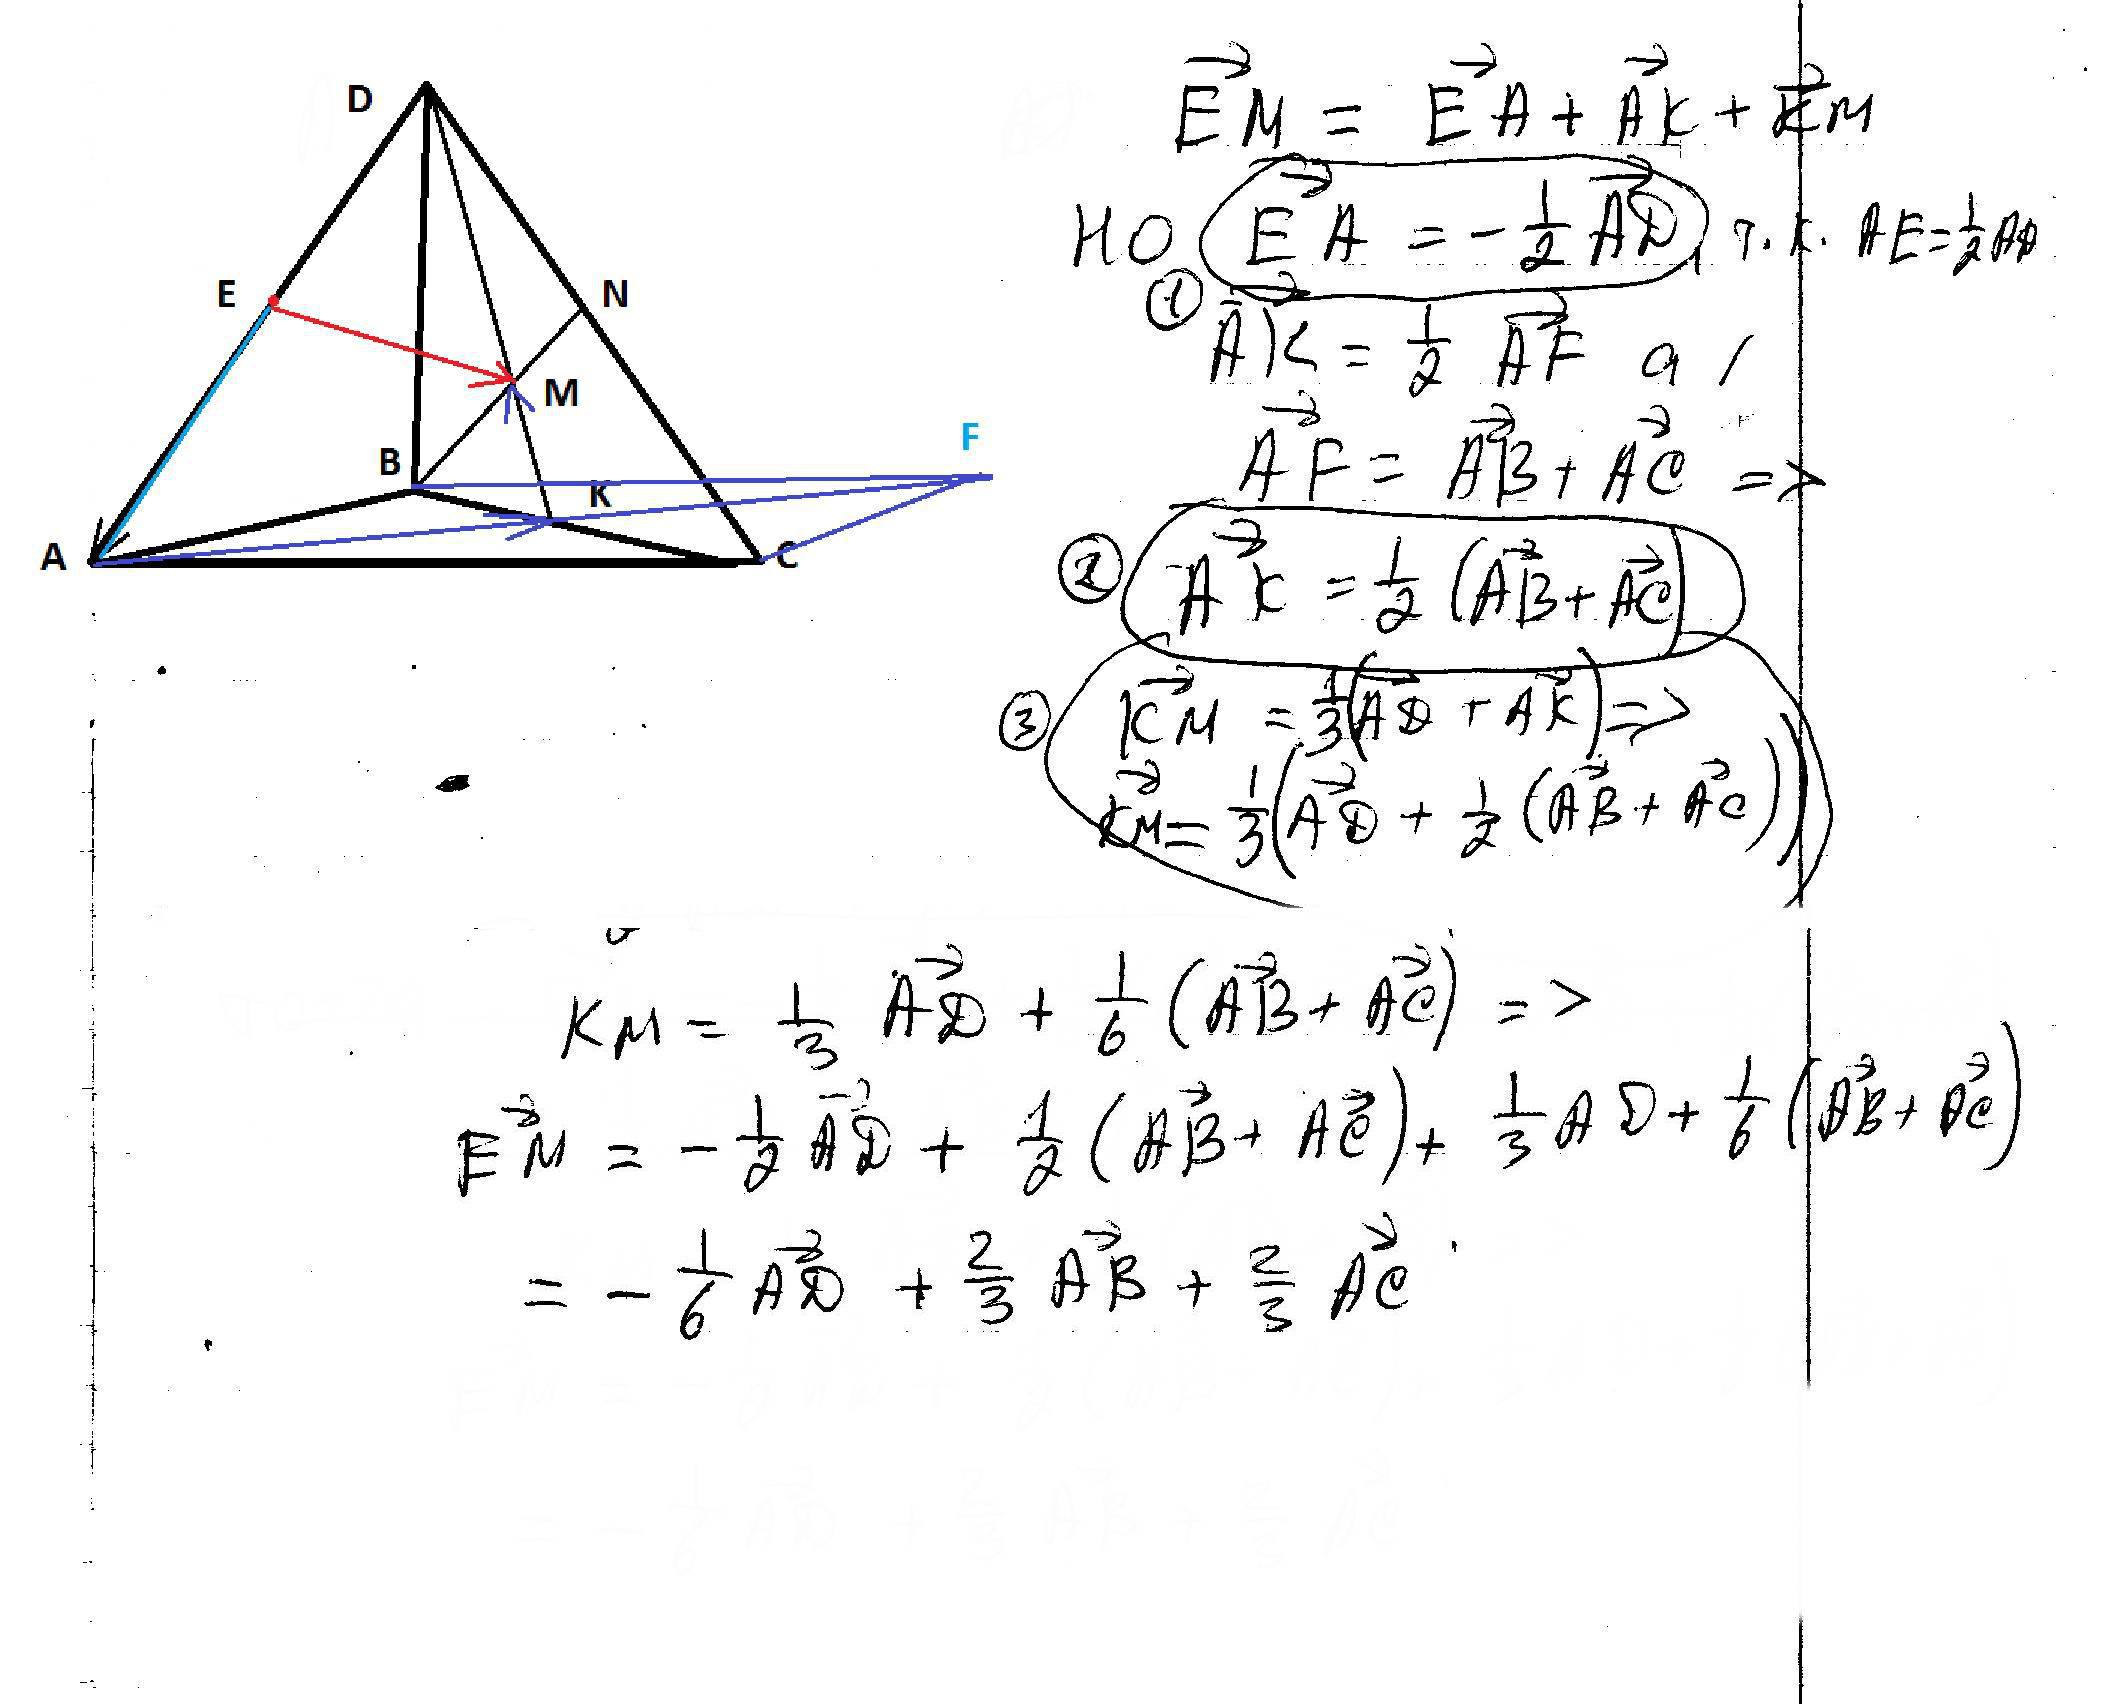 D
E
N
M
B
F
K
A
C
EM = EA + AK + KM
НО EA = -1/2 AD, т.к. AE = 1/2 AD
1
AK = 1/2 AF а
AF = AB + AC =>
2 AK = 1/2 (AB + AC)
3 KM = 1/3 (AD + AK) =>
KM = 1/3 (AD + 1/2 (AB + AC))
KM = 1/3 AD + 1/6 (AB + AC) =>
EM = -1/2 AD + 1/2 (AB + AC) + 1/3 AD + 1/6 (AB + AC)
= -1/6 AD + 2/3 AB + 2/3 AC